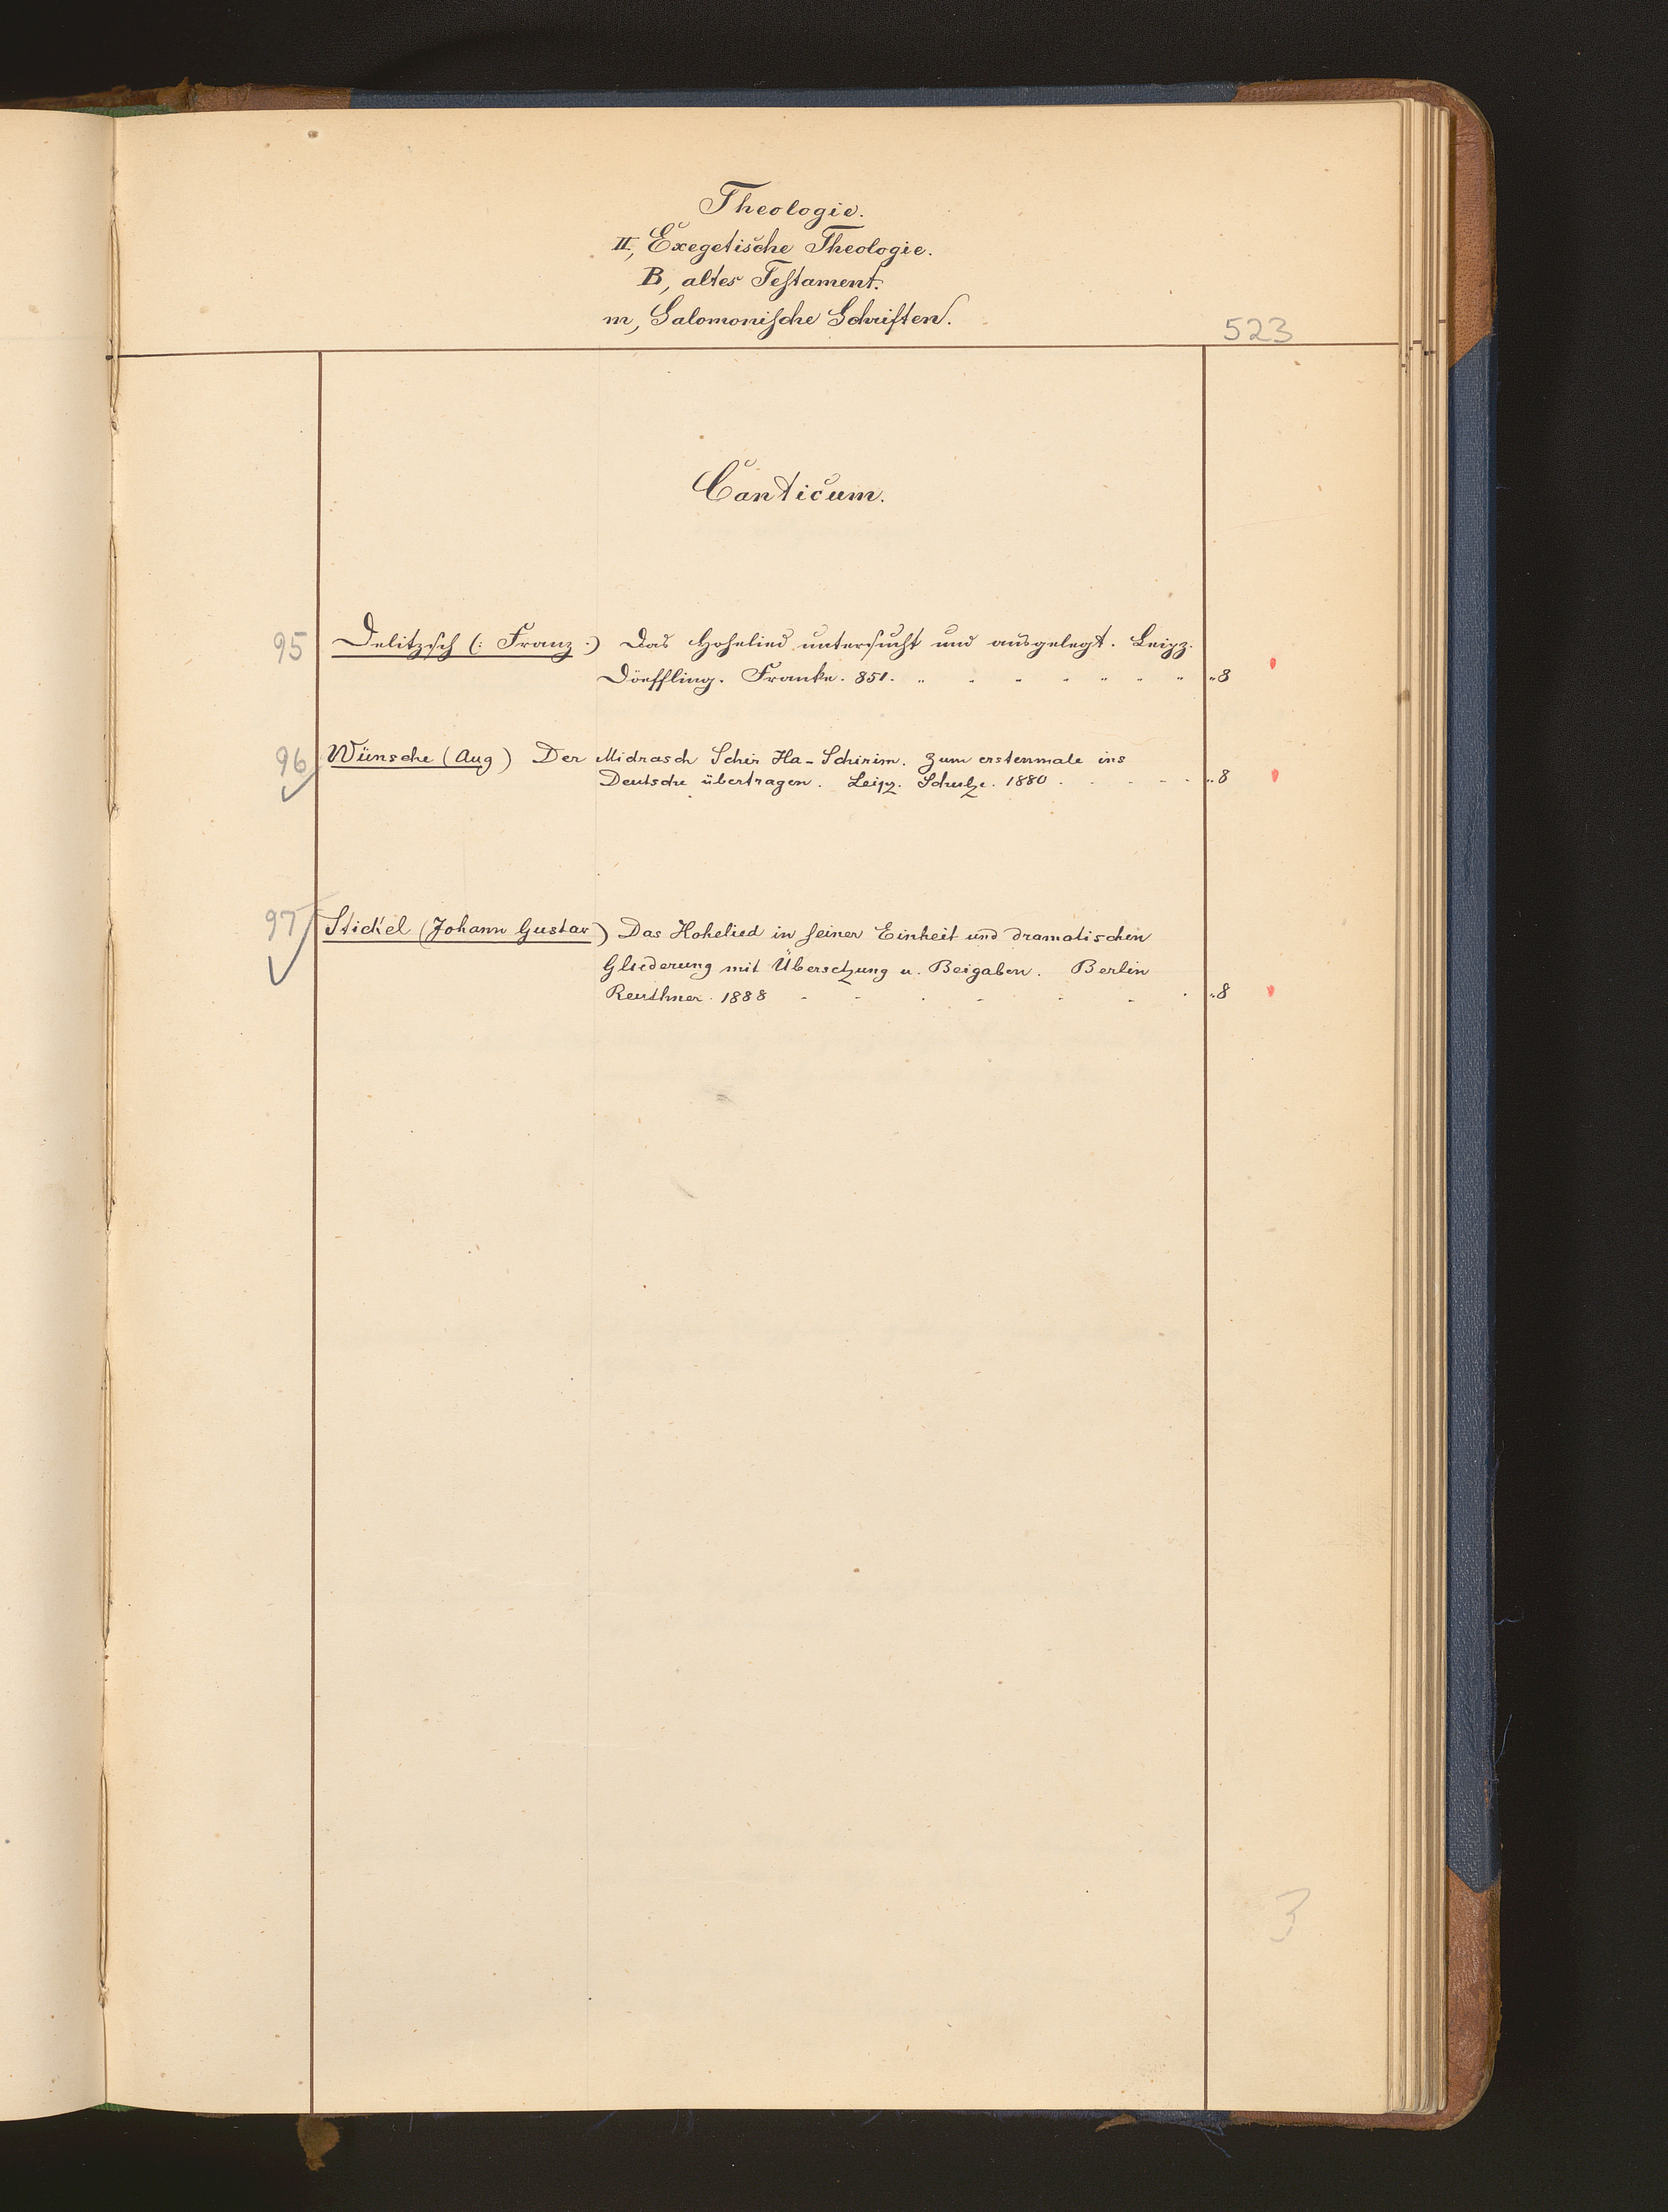 Theologie.
II, Exegetische Theologie.
B, altes Testament.
m, Salomonische Schriften.
523
Canticum.
95 Delitzsch (: Franz :) Das Hohelied untersucht und ausgelegt. Leipz.
Döeffling. Franke. 851. " " " " " " " "8
96 Wünsche (Aug) Der Midrasch Schir Ha-Schirim. Zum erstenmale ins
Deutsche übertragen. Leipz. Schulze. 1880 . . . . . . "8
97 Stickel (Johann Gustav) Das Hohelied in seiner Einheit und dramatischen
Gliederung mit Übersetzung u. Beigaben. Berlin
Reuthner. 1888 - - . - . - . "8
3